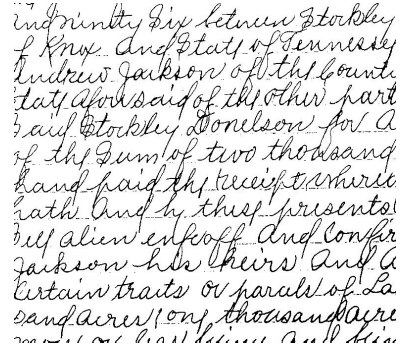 and ninety Six between Stockley
of Knox and State of Tennessey
Andrew Jackson of the County
State aforesaid of the other part
Said Stockley Donelson for a
of the Sum of two thousand
hand paid the receipt where
hath and by these presents
Sell alien enfeoff and Confir
Jackson his heirs and a
Certain tracts or parcels of La
sand acres, one thousand acre
more or less